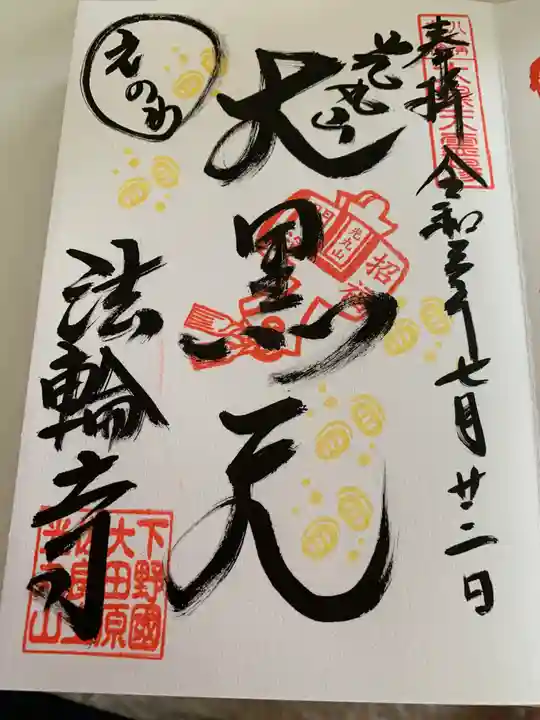 奉拝 令和三年七月廿二日
光丸山
大黒天
光丸山
招福
えのゆ
法輪寺
下野國
大田原
佐良土
光丸山